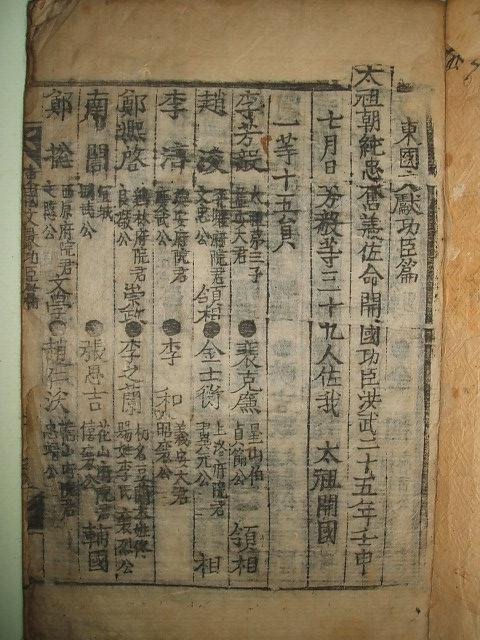 東國文獻功臣篇
太祖朝純忠奮義佐命開國功臣洪武二十五年壬申
七月日芳毅等三十九人佐我 太祖開國
一等十五員
李芳毅 太祖第三子 益安大君 ● 裴克廉 星山伯 貞節公 領相
趙浚 平壤府院君 文忠公 領相 ● 金士衡 上洛府院君 翼元公 相
李濟 安府院君 公 ● 李和 義安大君 昭襄公
鄭熙啓 鷄林府院君 良敬公 崇政 ● 李之蘭 初名豆蘭 賜姓李氏襄烈公
南誾 宜城 公 ● 張思吉 花山府院君 僖襄公 輔國
鄭摠 西原府院君 文愍公 文學 ● 趙仁沃 山府院君 忠靖公